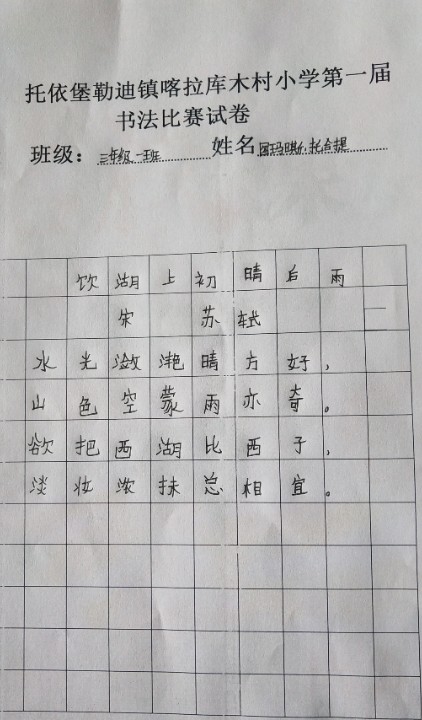 托依堡勒迪镇喀拉库木村小学第一届
书法比赛试卷
班级：三年级一班 姓名
饮湖上初晴后雨
宋 苏轼
水光潋滟晴方好，
山色空蒙雨亦奇。
欲把西湖比西子，
淡妆浓抹总相宜。